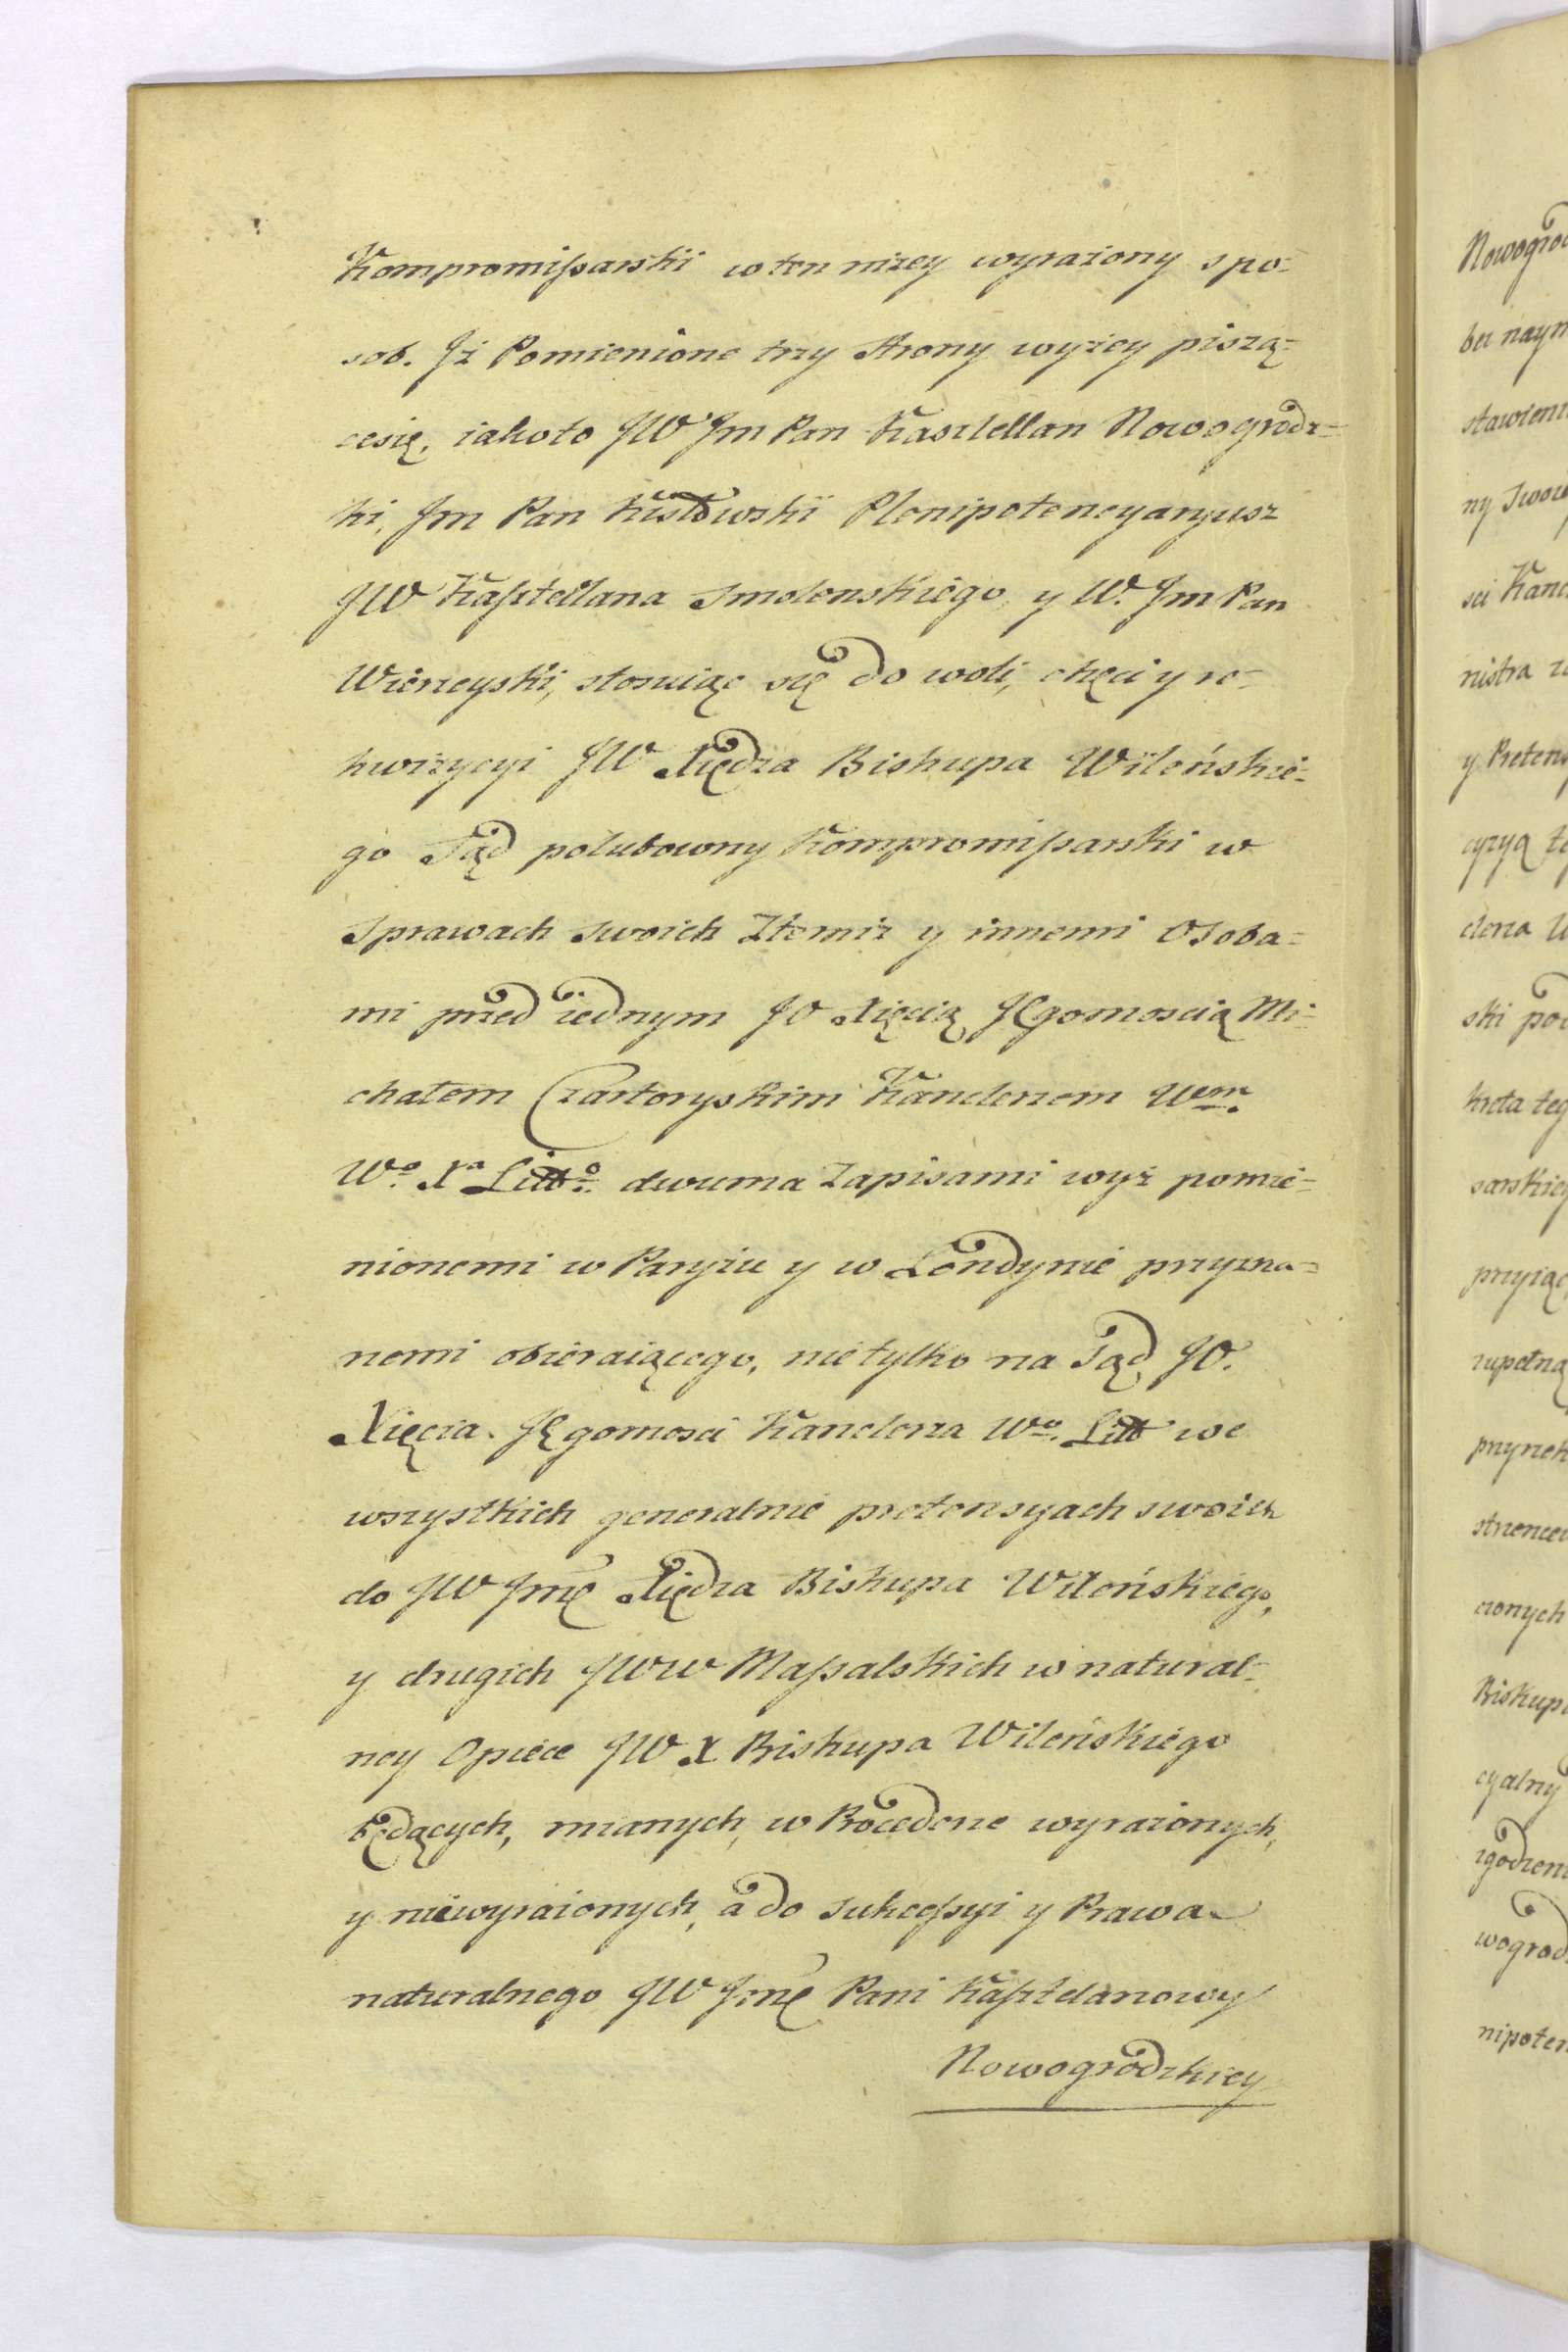 Kompromißarskii w ten niżey wyrażony spo=
sob. Jż Pomienione trzy strony wyżey piszą=
cesię, iakoto JW Jm Pan Kasztellan Nowogrodz=
ki, Jm Pan Kisłowskii Plenipotencyaryusz
JW Kaßztellana Smolenskiego, y W. Jm Pan
Wierzeyski, stosuiąc się do woli, chęci y re=
kwizycyi JW Xiędza Biskupa Wileńskie=
go Sąd polubowny Kompromißarski w
Sprawach swoich Ztemiż y innemi Osoba=
mi przed iednym JO Xięcią JEgomoscią Mi=
chałem Czartoryskim Kanclerzem Wem.
Wo. Xa Litto. dwuma Zapisami wyż pomie=
nionemi w Paryżu y w Londynie przyzna=
nemi obieraiącego, nie tylko na Sąd JO.
Xięcia JEgomosci Kanclerza Wo. Litt we
wszystkich generalnie pretensyach swoich
do JW Jmę Xiędza Biskupa Wileńskiego,
y drugich JWW Maßalskich w natural=
ney Opiece JW X Biskupa Wileńskiego
będących, mianych, w Procederze wyrażonych,
y niewyrażonych, a do sukceßyi y Prawa
naturalnego JW Jmę Pani Kaßztelanowy
Nowogrodzkiey
Nowogrod
bei nayn
stawieni
ny Swoie
sci Kanc
nistra
y Pretens
cyzyą
clerza
ski pod
kreta teg
sarskiey
przyiąć
zupełną
przyrzek
cionych
Biskupa
cyalny
zgodzeni
wogrod
nipoten